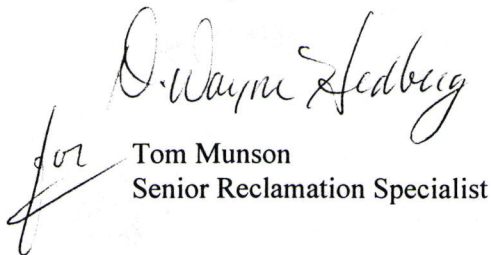 D. Wayne Hedberg
for Tom Munson
Senior Reclamation Specialist